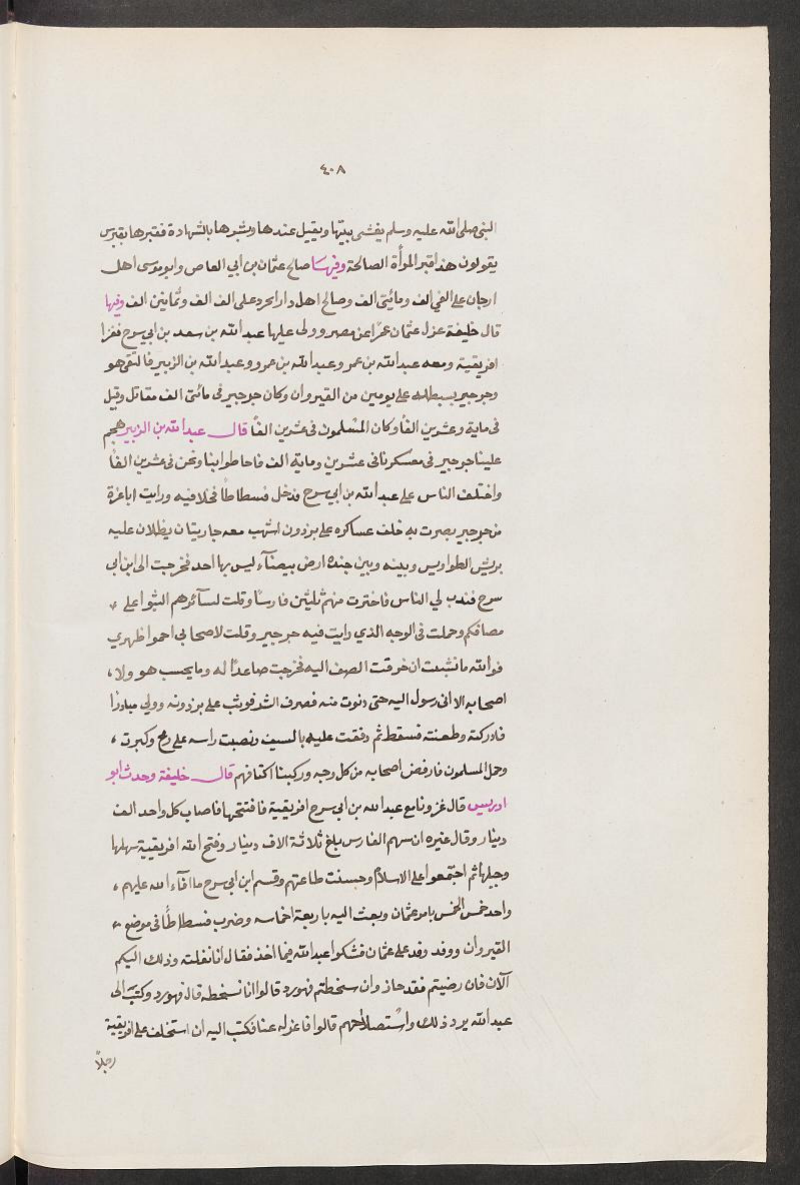 ٤٠٨
النبي صلى الله عليه وسلم يغشى بيتها ويقيل عندها وبشرها بالشهادة فقبرها بقبرس
يقولون هذا قبر المرأة الصالحة وفيها صالح عثمان بن أبي العاص وابو موسى اهل
ارجان على الفي الف ومائتى الف وصالح اهل دارابجرد على الف الف وثمانين الف وفيها
قال خليفة عزل عثمان عمرًا عن مصر وولى عليها عبد الله بن سعد بن ابي سرح فغزا
افريقية ومعه عبد الله بن عمر وعبد الله بن عمرو وعبد الله بن الزبير فالتقى هو
وجرجير بسبيطله على يومين من القيروان وكان جرجير في مائتى الف مقاتل وقيل
فى ماية وعشرين الفًا وكان المسلمون فى عشرين الفًا قال عبد الله بن الزبير هجم
علينا جرجير فى معسكرنا فى عشرين وماية الف فاحاطوا بنا ونحن فى عشرين الفًا
واختلف الناس على عبد الله بن ابي سرح فدخل فسطاطًا فخلا فيه ورايت انا غرة
من جرجير بصرت به خلف عساكره على برذون اشهب معه جاريتان يظلان عليه
بريش الطواويس وبينه وبين جنده ارض بيضآء ليس بها احد فخرجت الى ابن ابي
سرح فندب لي الناس فاخترت منهم ثلثين فارسًا وقلت لسآئرهم البثوا على
مصافكم وحملت فى الوجه الذي رايت فيه جرجير وقلت لاصحابي احموا ظهري
فوالله ما نشبت ان خرقت الصف اليه فخرجت صامدًا له وما يحسب هو ولا،
اصحابه الا انى رسول اليه حتى دنوت منه فعرف الشر فوثب على برذونه وولى مبادرًا
فادركته وطعنته فسقط ثم دففت عليه بالسيف ونصبت راسه على رمح وكبرت،
وحمل المسلمون فارفض اصحابه من كل وجه وركبنا اكتافهم قال خليفة وحدث ابو
ادريس قال غزونا مع عبد الله بن ابي سرح افريقية فافتتحها فاصاب كل واحد الف
دينار وقال غيره ان سهم الفارس بلغ ثلاثة الاف دينار وفتح الله افريقية سهلها
وجبلها ثم اجتمعوا على الاسلام وحسنت طاعتهم وقسم ابن ابي سرح ما افآء الله عليهم،
واخذ خمس الخمس بامر عثمان وبعث اليه باربعة اخماسه وضرب فسطاطًا فى موضع
القيروان ووفد وفد على عثمان فشكوا عبد الله فيما اخذ فقال انا نفلته وذلك اليكم
الآن فان رضيتم فقد جاز وان سخطتم فهو رد قالوا انا نسخطه قال فهو رد وكتب الى
عبد الله برد ذلك واستصلاحهم قالوا فاعزله عنا فكتب اليه ان استخلف على افريقية
رجلاً